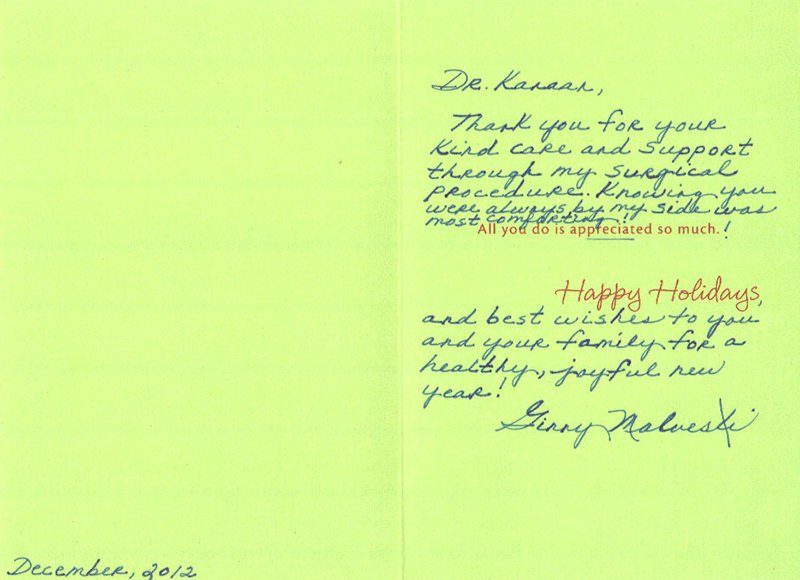 Dr. Kanaan,
Thank you for your
kind care and support
through my surgical
procedure. Knowing you
were always by my side was
most comforting!
All you do is appreciated so much.!
Happy Holidays,
and best wishes to you
and your family for a
healthy, joyful new
year!
Ginny Malveski
December, 2012